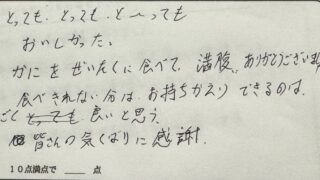 とっても、とっても、と〜っても
おいしかった。
かにをぜいたくに食べて、満腹、ありがとうございます
食べきれない分は、お持ちかえりできるのは、
ごくとても良いと思う。
皆さんの気くばりに感謝.
10点満点で ___ 点